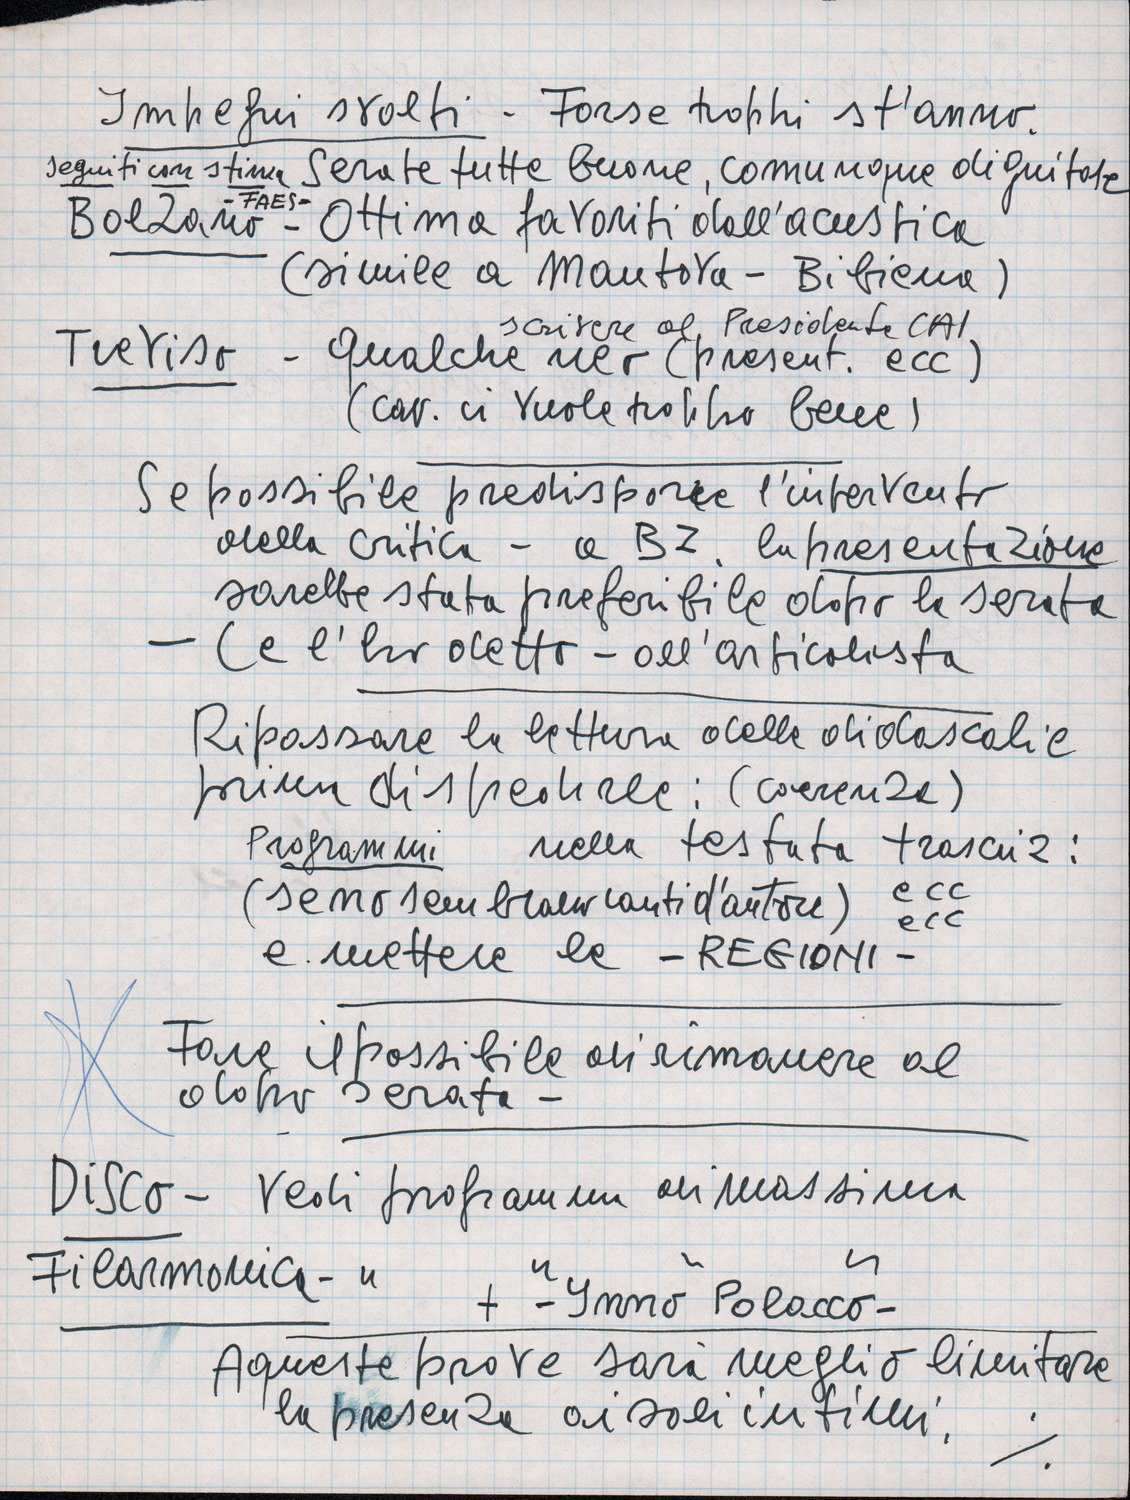 Impegni svolti - Forse troppi st'anno.
seguiti con stima Serate tutte buone, comunque dignitose
-FAES-
Bolzano - Ottima favoriti dall'acustica
(simile a Mantova - Bibiena)
scrivere al Presidente CAI
Treviso - Qualche neo (present. ecc)
(cav. ci vuole troppo bene)
Se possibile predisporre l'intervento
della critica - a BZ. la presentazione
sarebbe stata preferibile dopo la serata
- Ce l'ho detto - all'articolista
Ripassare la lettura delle didascalie
prima di spedirle: (coerenza)
Programmi nella testata trascriz:
(se no sembrano canti d'autore) ecc
ecc
e mettere le - REGIONI -
Fare il possibile di rimanere al
dopo serata -
Disco - Vedi programma di massima
Filarmonica - " " " "
+ - Inno Polacco -
A queste prove sarà meglio limitare
la presenza ai soli intimi.
./.